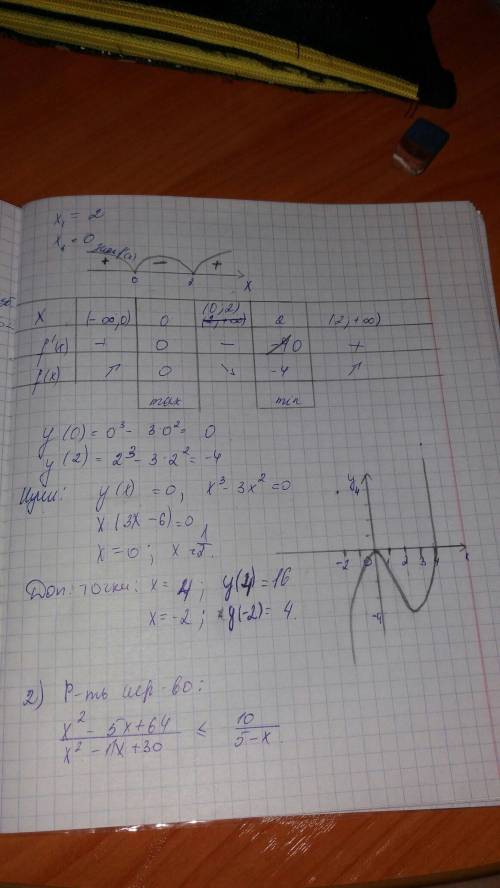 x₁ = 2
x₂ = 0
+ − +
0 2 x
x (-∞,0) 0 (0,2) 2 (2,+∞)
f'(x) + 0 − 0 +
f(x) ↗ 0 ↘ -4 ↗
max min
y(0) = 0³ - 3·0² = 0
y(2) = 2³ - 3·2² = -4
Нули: y(x) = 0, x³ - 3x² = 0
x(3x - 6) = 0
x = 0; x =
Доп. точки: x = 4; y(4) = 16
x = -2; y(-2) = 4.
y
4
-2 0 2 3 4 x
-4
2) Р-ть нер-во:
x² - 5x + 64 / x² - 11x + 30 ≤ 10 / 5 - x